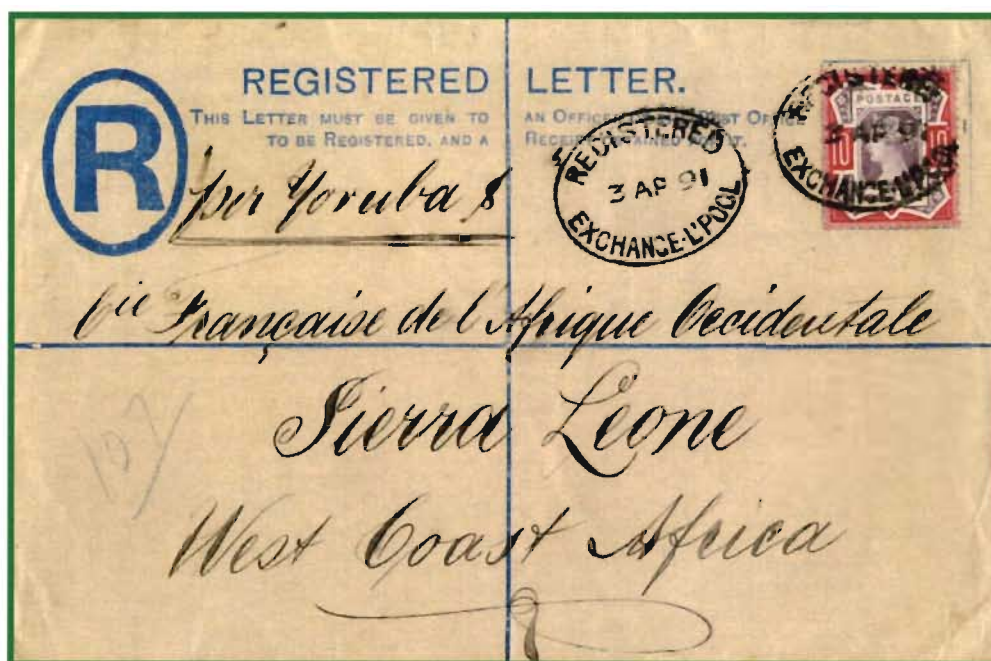 REGISTERED LETTER.
THIS LETTER MUST BE GIVEN TO AN OFFICER POST OFFICE
TO BE REGISTERED, AND A RECEIPT OBTAINED
REGISTERED
3 AP 91
EXCHANGE·L'POOL
REGISTERED
3 AP 91
EXCHANGE·L'POOL
POSTAGE
10 10
R
per Yoruba
Cie Française de l'Afrique Occidentale
Sierra Leone
West Coast Africa